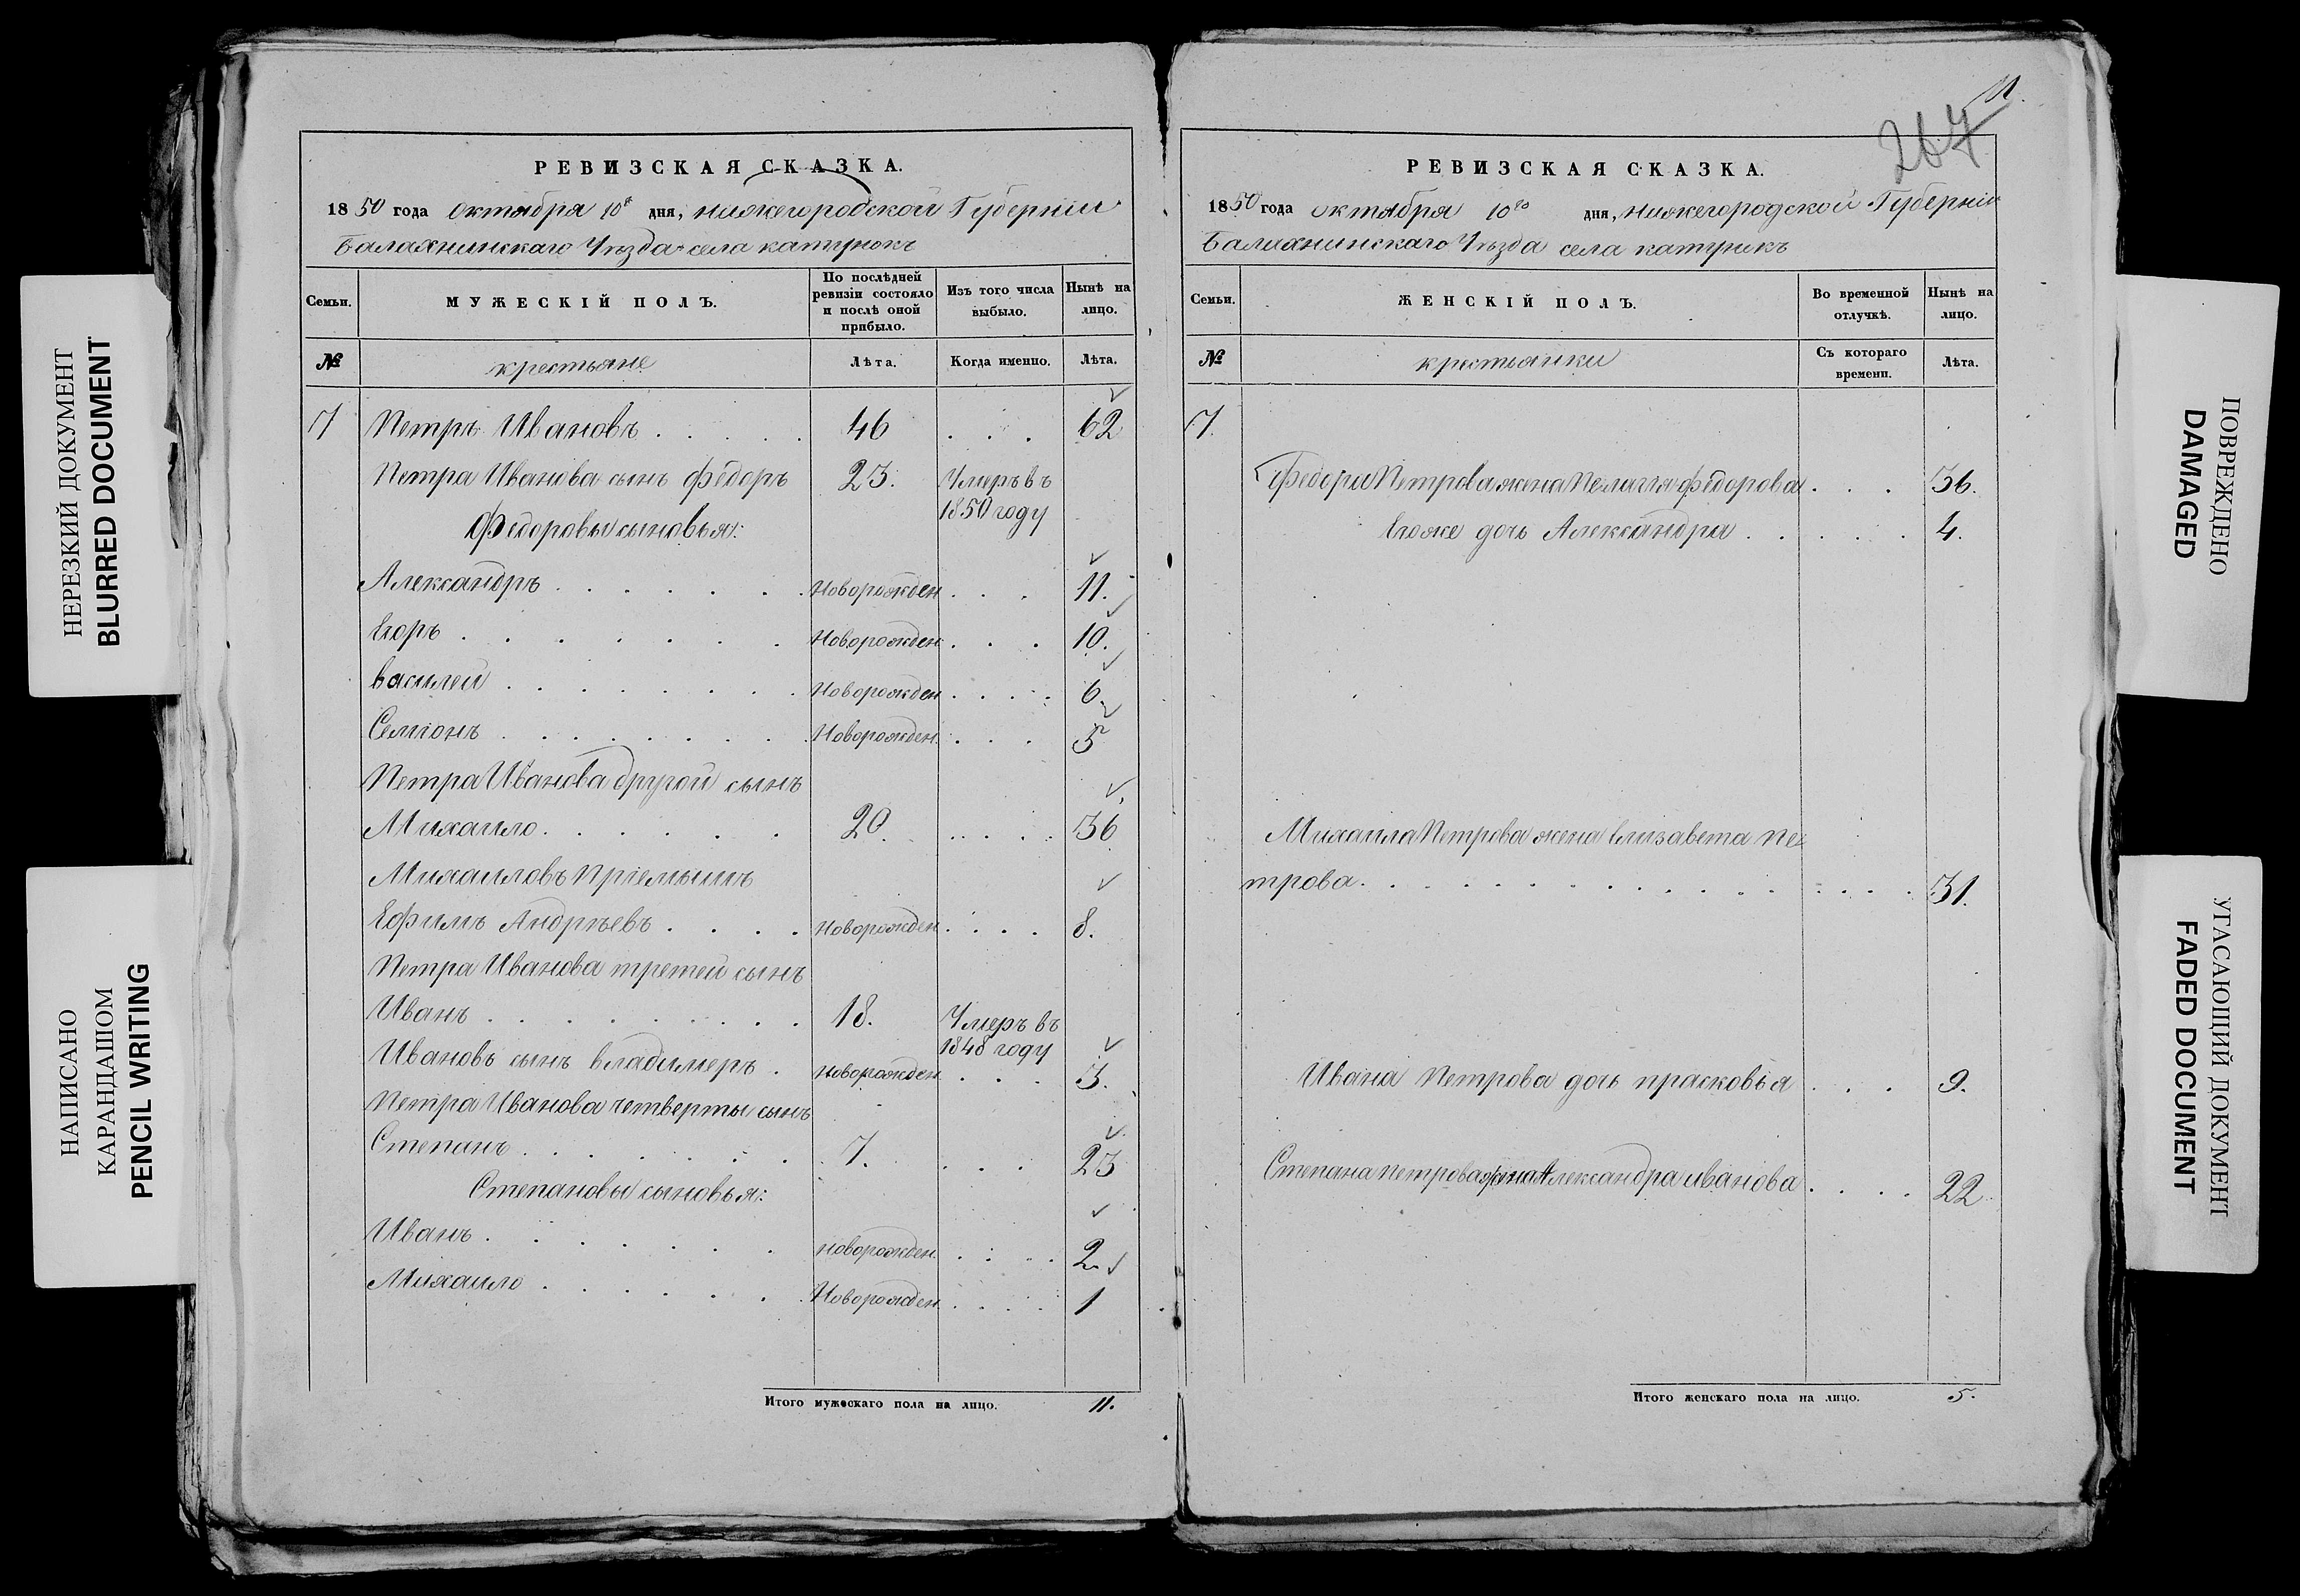 НЕРЕЗКИЙ ДОКУМЕНТ
BLURRED DOCUMENT
НАПИСАНО
КАРАНДАШОМ
PENCIL WRITING
РЕВИЗСКАЯ СКАЗКА.
1850 года октября 10г дня, нижегородской Губерніи
Балахнинскаго Уѣзда села катунокъ
Семьи.
МУЖЕСКІЙ ПОЛЪ.
По послѣдней ревизіи состояло и послѣ оной прибыло.
Изъ того числа выбыло.
Нынѣ на лицо.
№ крестьяне Лѣта. Когда именно. Лѣта.
7 Петръ Ивановъ . . . . . 46 . . . 62
Петра Иванова сынъ Федоръ 23. Умеръ въ
1850 году
Федоровы сыновья:
Александръ . . . . . . Новорожден . . . 11.
Егоръ . . . . . . . Новорожден . . . 10.
василей . . . . . . . Новорожден . . . . 6.
Семіонъ . . . . . . . Новорожден. . . . 5
Петра Иванова другой сынъ
Михаило . . . . . . 20. . . . . 36
Михаиловъ Пріемышъ
Ефимъ Андрѣевъ . . . . новорожден . . . . 8.
Петра Иванова третей сынъ
Иванъ . . . . . . . . 18. Умеръ въ
1848 году
Ивановъ сынъ владимеръ . новорожден . . . 3.
Петра Иванова четверты сынъ
Степанъ . . . . . . . 7. . . . 23
Степановы сыновья:
Иванъ . . . . . . . новорожден. . . . . 2.
Михаило . . . . . . Новорожден. . . . . 1
Итого мужескаго пола на лицо. 11.
11.
267
РЕВИЗСКАЯ СКАЗКА.
1850 года октября 10го дня, нижегородской Губерніи
Балахнинскаго Уѣзда села катунокъ
Семьи.
ЖЕНСКІЙ ПОЛЪ.
Во временной отлучкѣ.
Нынѣ на лицо.
№ крестьянки Съ котораго времени. Лѣта.
7.
Федора Петрова жена Пелагія Федорова . . . 36.
Егоже дочь Александра . . . . . 4.
Михаила Петрова жена Елизавета Пе=
трова . . . . . . . . . . . . . . 31.
Ивана Петрова дочь прасковья . . . 9.
Степана петрова жена Александра иванова . . . . 22
Итого женскаго пола на лицо. 5.
ПОВРЕЖДЕНО
DAMAGED
УГАСАЮЩИЙ ДОКУМЕНТ
FADED DOCUMENT